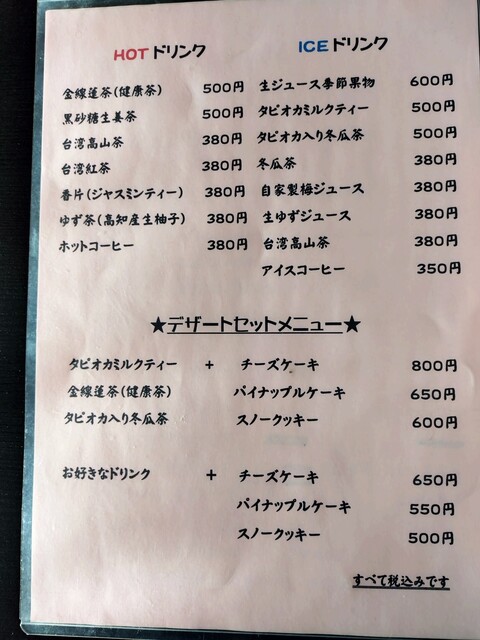 HOT ドリンク
金線蓮茶(健康茶) 500円
黒砂糖生姜茶 500円
台湾高山茶 380円
台湾紅茶 380円
香片(ジャスミンティー) 380円
ゆず茶(高知産生柚子) 380円
ホットコーヒー 380円
ICE ドリンク
生ジュース季節果物 600円
タピオカミルクティー 500円
タピオカ入り冬瓜茶 500円
冬瓜茶 380円
自家製梅ジュース 380円
生ゆずジュース 380円
台湾高山茶 380円
アイスコーヒー 350円
★デザートセットメニュー★
タピオカミルクティー + チーズケーキ 800円
金線蓮茶(健康茶) パイナップルケーキ 650円
タピオカ入り冬瓜茶 スノークッキー 600円
お好きなドリンク + チーズケーキ 650円
パイナップルケーキ 550円
スノークッキー 500円
すべて税込みです